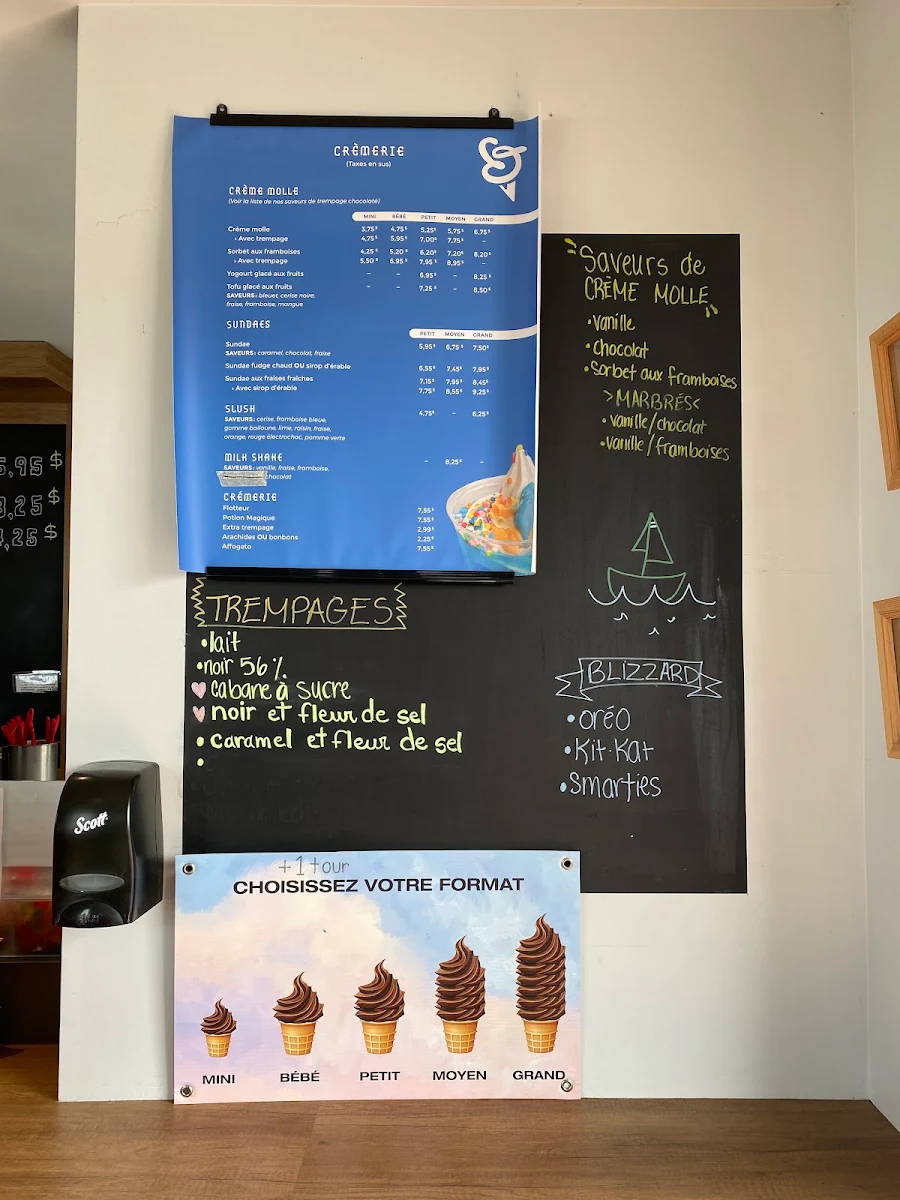 CRÈMERIE
(Taxes en sus)
CRÈME MOLLE
(Voir la liste de nos saveurs de trempage chocolaté)
MINI BÉBÉ PETIT MOYEN GRAND
Crème molle 3,75$ 4,75$ 5,25$ 5,75$ 6,75$
• Avec trempage 4,75$ 5,95$ 7,00$ 7,75$ –
Sorbet aux framboises 4,25$ 5,20$ 6,20$ 7,20$ 8,20$
• Avec trempage 5,50$ 6,95$ 7,95$ 8,95$ –
Yogourt glacé aux fruits – – 6,95$ – 8,25$
Tofu glacé aux fruits – – 7,25$ – 8,50$
SAVEURS: bleuet, cerise noire,
fraise, framboise, mangue
SUNDAES
PETIT MOYEN GRAND
Sundae 5,95$ 6,75$ 7,50$
SAVEURS: caramel, chocolat, fraise
Sundae fudge chaud OU sirop d'érable 6,55$ 7,45$ 7,95$
Sundae aux fraises fraîches 7,15$ 7,95$ 8,45$
• Avec sirop d'érable 7,75$ 8,55$ 9,25$
SLUSH 4,75$ – 6,25$
SAVEURS: cerise, framboise bleue,
gomme balloune, lime, raisin, fraise,
orange, rouge électrochoc, pomme verte
MILK SHAKE – 8,25$ –
SAVEURS: vanille, fraise, framboise,
chocolat
CRÉMERIE
Flotteur 7,55$
Potion Magique 7,55$
Extra trempage 2,99$
Arachides OU bonbons 2,25$
Affogato 7,55$
Saveurs de
CRÈME MOLLE
•vanille
•chocolat
•Sorbet aux framboises
>MARBRÉS<
•vanille/chocolat
•vanille/framboises
5,95$
3,25$
4,25$
TREMPAGES
•lait
•noir 56%
cabane à sucre
noir et fleur de sel
•caramel et fleur de sel
•
BLIZZARD
•oréo
•Kit-Kat
•Smarties
Scott
+1 tour
CHOISISSEZ VOTRE FORMAT
MINI BÉBÉ PETIT MOYEN GRAND